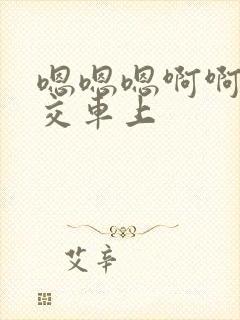 嗯嗯嗯啊啊
交车上
艾辛